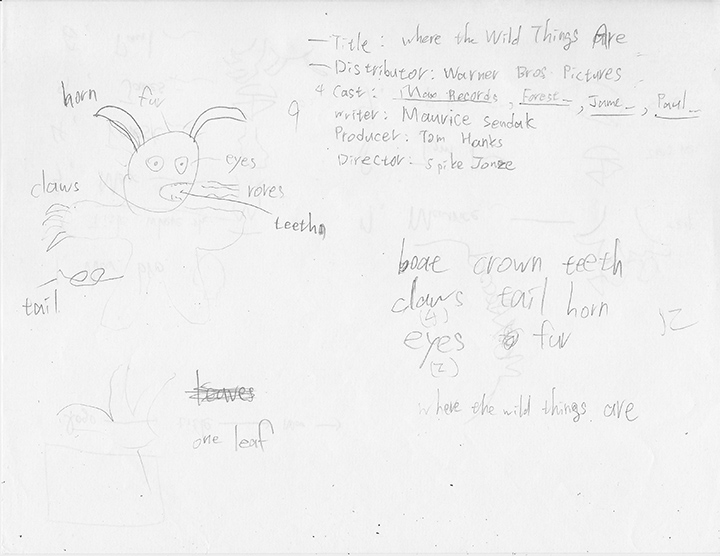 — Title : where the Wild Things Are
— Distributor : Warner Bros. Pictures
4 Cast : Max Records, Forest_, Jame_, Paul_
writer : Maurice Sendak
Producer : Tom Hanks
Director : Spike Jonze
9
horn
fur
eyes
claws
rores
teeth
tail
boat crown teeth
claws tail horn
(4)
eyes fur
(2)
12
where the wild things are
leaves
one leaf